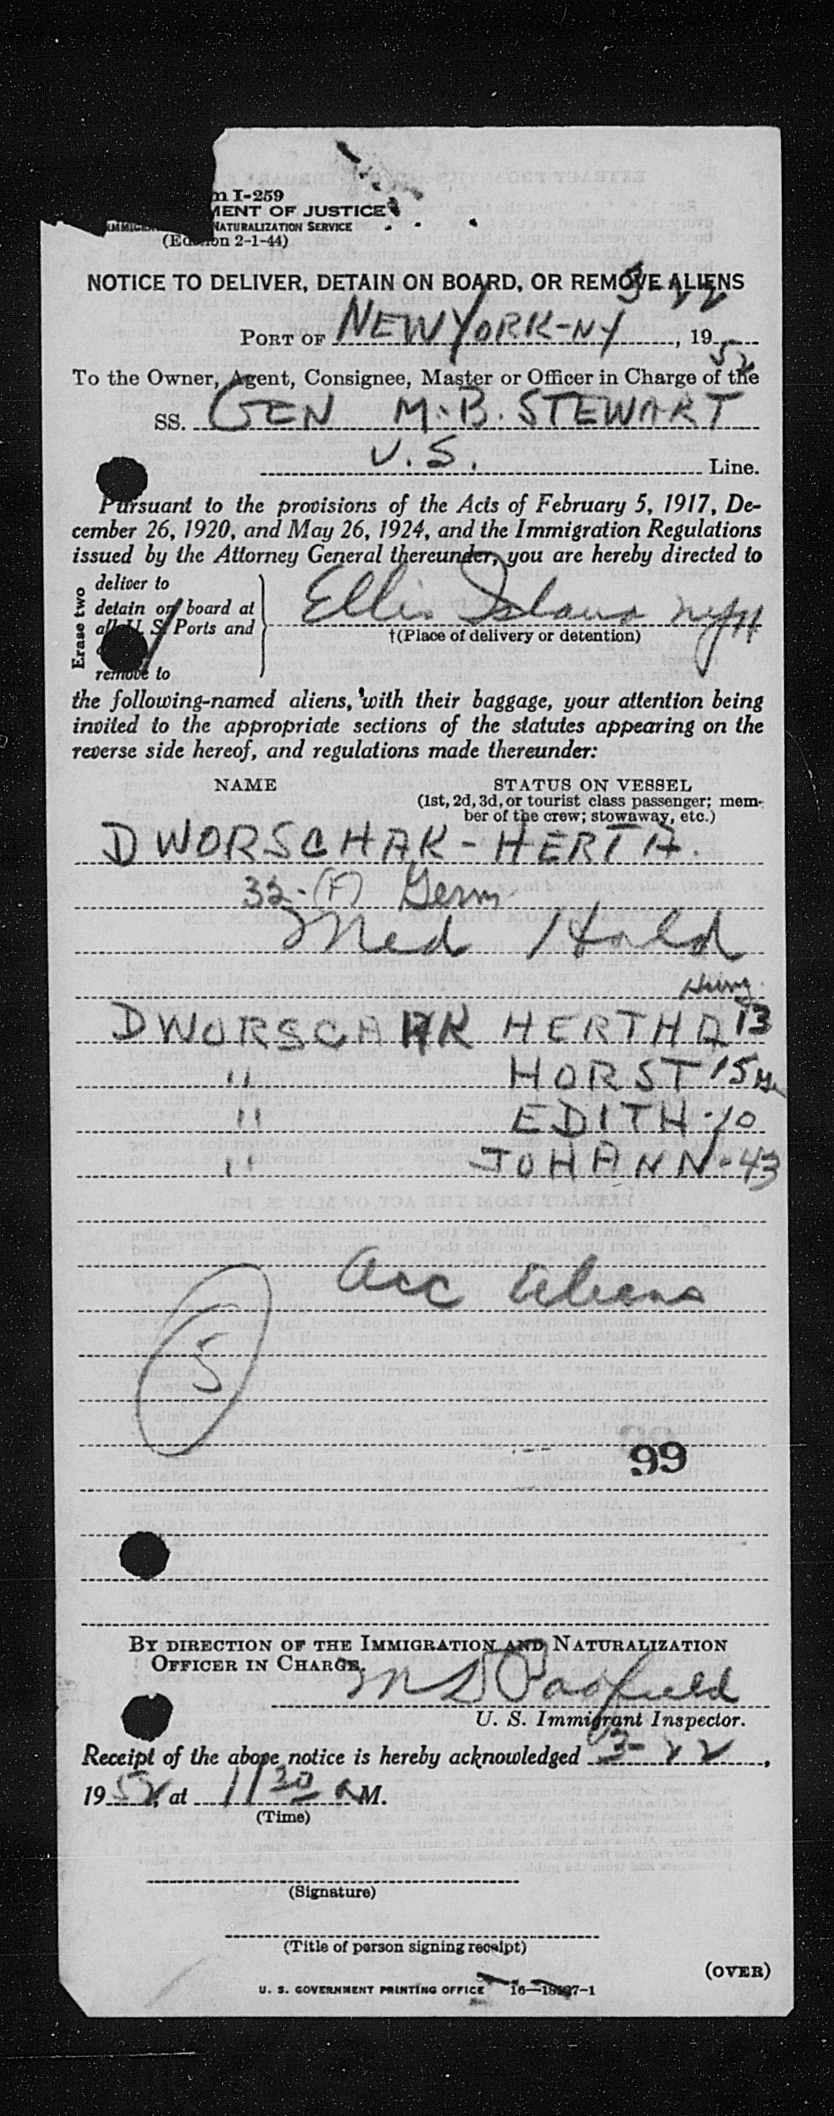 I-259
MENT OF JUSTICE
NATURALIZATION SERVICE
(Edition 2-1-44)
NOTICE TO DELIVER, DETAIN ON BOARD, OR REMOVE ALIENS
3-22
PORT OF NEW YORK-NY, 1952
To the Owner, Agent, Consignee, Master or Officer in Charge of the
SS. GEN M.B. STEWART
U.S. Line.
Pursuant to the provisions of the Acts of February 5, 1917, De-
cember 26, 1920, and May 26, 1924, and the Immigration Regulations
issued by the Attorney General thereunder, you are hereby directed to
Erase two
deliver to
detain on board at
all U. S. Ports and
remove to
Ellis Island
†(Place of delivery or detention)
the following-named aliens, with their baggage, your attention being
invited to the appropriate sections of the statutes appearing on the
reverse side hereof, and regulations made thereunder:
NAME STATUS ON VESSEL
(1st, 2d, 3d, or tourist class passenger; mem-
ber of the crew; stowaway, etc.)
DWORSCHAK-HERTA.
32-(F) Germ.
Med Hold
Hung.
DWORSCHAK HERTHA 13
" HORST 15
" EDITH-10
" JOHANN-43
acc aliens
5
99
BY DIRECTION OF THE IMMIGRATION AND NATURALIZATION
OFFICER IN CHARGE.
U. S. Immigrant Inspector.
Receipt of the above notice is hereby acknowledged 3-22,
1952, at 11 30 a M.
(Time)
(Signature)
(Title of person signing receipt)
(OVER)
U. S. GOVERNMENT PRINTING OFFICE